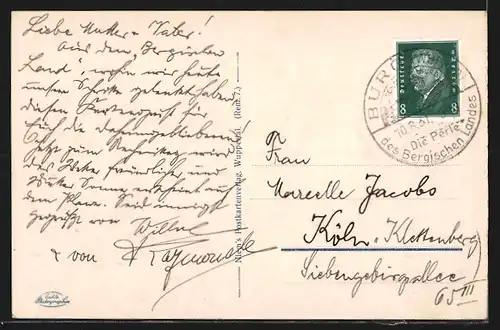 Liebe Mutter u. Vater!
Aus dem "Bergischen
Land", wohin wir heute
unsere Schritte gelenkt haben,
diesen Kartengruß für
Euch die daheimgebliebenen.
Jetzt zum Nachmittag wird
das Wetter freundlicher und
Sonne erscheint auf
dem Plane. Seid innigst
gegrüßt von Willi
& von Raymonde
Postkartenverlag, Wuppertal. (Reitt. 7.)
BURG
Die Perle
des Bergischen Landes
Deutsches Reich
8 8
Frau
Marcelle Jacobs
Köln-Klettenberg
Siebengebirgsallee
65 III